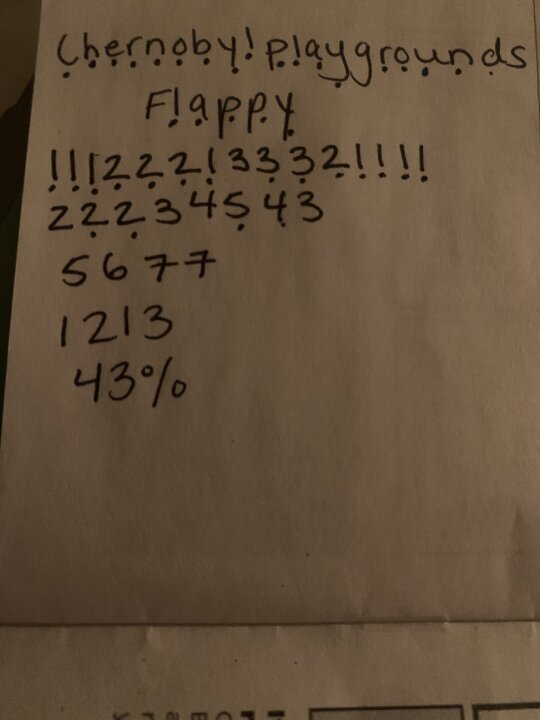 Chernobyl playgrounds
Flappy
111222133321111
22234543
5677
1213
43%